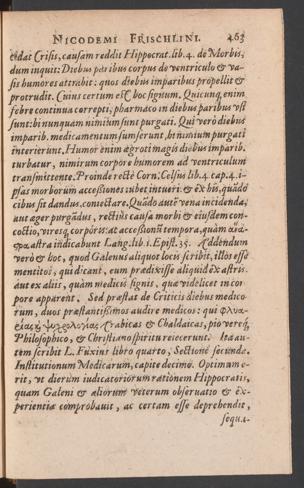 NICODEMI FRISCHLINI. 463
cidat Crisis, causam reddit Hippocrat. lib. 4. de Morbis,
dum inquit: Diebus paribus corpus de ventriculo & va-
sis humores attrahit: quos diebus imparibus propellit &
protrudit. Cuius certum est hoc signum. Quicunq, enim
febre continua correpti, pharmaco in diebus paribus vsi
sunt: hi nunquam nimium sunt purgati. Qui verò diebus
imparib. medicamentum sumserunt, hi nimium purgati
interierunt, Humor enim ægroti magis diebus imparib.
turbatur, nimirum corpore humorem ad ventriculum
transmittente. Proinde rectè Corn. Celsus lib. 4. cap. 4. i-
psas morborum accessiones iubet intueri: & ex his, quãdo
cibus sit dandus, coniectare. Quãdo autẽ vena incidenda,
aut æger purgãdus, rectiùs causa morbi & eiusdem con-
coctio, viresq; corporis: at accessionũ tempora, quàm
astra indicabunt Lang. lib. 1. Epist. 35. Addendum
verò & hoc, quod Galenus aliquot locis scribit, illos esse
mentitos, qui dicant, eum prædixisse aliquid ex astris,
aut ex aliis, quàm medicis signis, quæ videlicet in cor-
pore apparent. Sed præstat de Criticis diebus medico-
rum, duos præstantissimos audire medicos: qui φλυα-
Arabicas & Chaldaicas, pio vereq,
Philosophico, & Christiano spiritu reiecerunt. Ita au-
tem scribit L. Fuxius libro quarto, Sectione secunda.
Institutionum Medicarum, capite decimo. Optimum e-
rit, vt dierum iudicatoriorum rationem Hippocratis,
quam Galeni & aliorum veterum obseruatio & ex-
perientia comprobauit, ac certam esse deprehendit,
sequa-